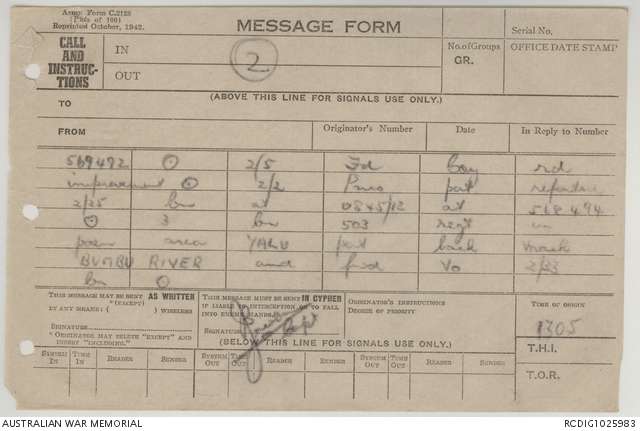 Army Form C.2128
(Pads of 100)
Reprinted October, 1942.
MESSAGE FORM
Serial No.
CALL AND INSTRUC-TIONS
IN
OUT
2
No. of Groups
GR.
OFFICE DATE STAMP
(ABOVE THIS LINE FOR SIGNALS USE ONLY.)
TO
FROM
Originator's Number
Date
In Reply to Number
569492 ⊙ 2/5 Fd Coy rd
improvement ⊙ 2/2 Pnrs patrol
2/25 bn at 0845/12 at 568494
⊙ 3 bn 503 regt in
posn area YALU patrol back
BUMBU RIVER and fwd to 2/33
bn ⊙
THIS MESSAGE MAY BE SENT AS WRITTEN
(EXCEPT)
BY ANY MEANS ( ) WIRELESS
SIGNATURE
"ORIGINATOR MAY DELETE "EXCEPT" AND
INSERT "INCLUDING."
THIS MESSAGE MUST BE SENT IN CYPHER
IF LIABLE TO INTERCEPTION OR TO FALL
INTO ENEMY HANDS.
SIGNATURE
Capt
ORIGINATOR'S INSTRUCTIONS
DEGREE OF PRIORITY
TIME OF ORIGIN
1205
T.H.I.
T.O.R.
(BELOW THIS LINE FOR SIGNALS USE ONLY.)
SYSTEM IN
TIME IN
READER
SENDER
SYSTEM OUT
TIME OUT
READER
SENDER
SYSTEM OUT
TIME OUT
READER
SENDER
AUSTRALIAN WAR MEMORIAL
RCDIG1025983